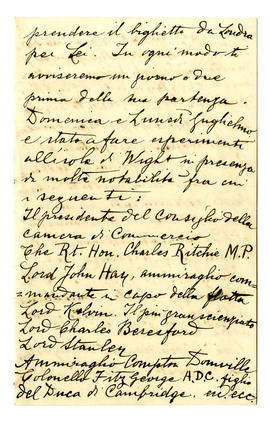 prendere il biglietto da Londra
per Lei. In ogni modo ti
avviseremo un giorno o due
prima della sua partenza.
Domenica e Lunedì Guglielmo
è stato a fare esperimenti
all'isola di Wight in presenza
di molte notabilità fra cui
i seguenti:
Il presidente del Consiglio della
camera di Commercio
The Rt. Hon. Charles Ritchie M.P.
Lord John Hay, ammiraglio com=
=mandante in capo della flotta
Lord Kelvin. Il più gran scienziato
Lord Charles Beresford
Lord Stanley
Ammiraglio Compton Domville
Colonello FitzGeorge A.D.C. figlio
del Duca di Cambridge. ecc ecc